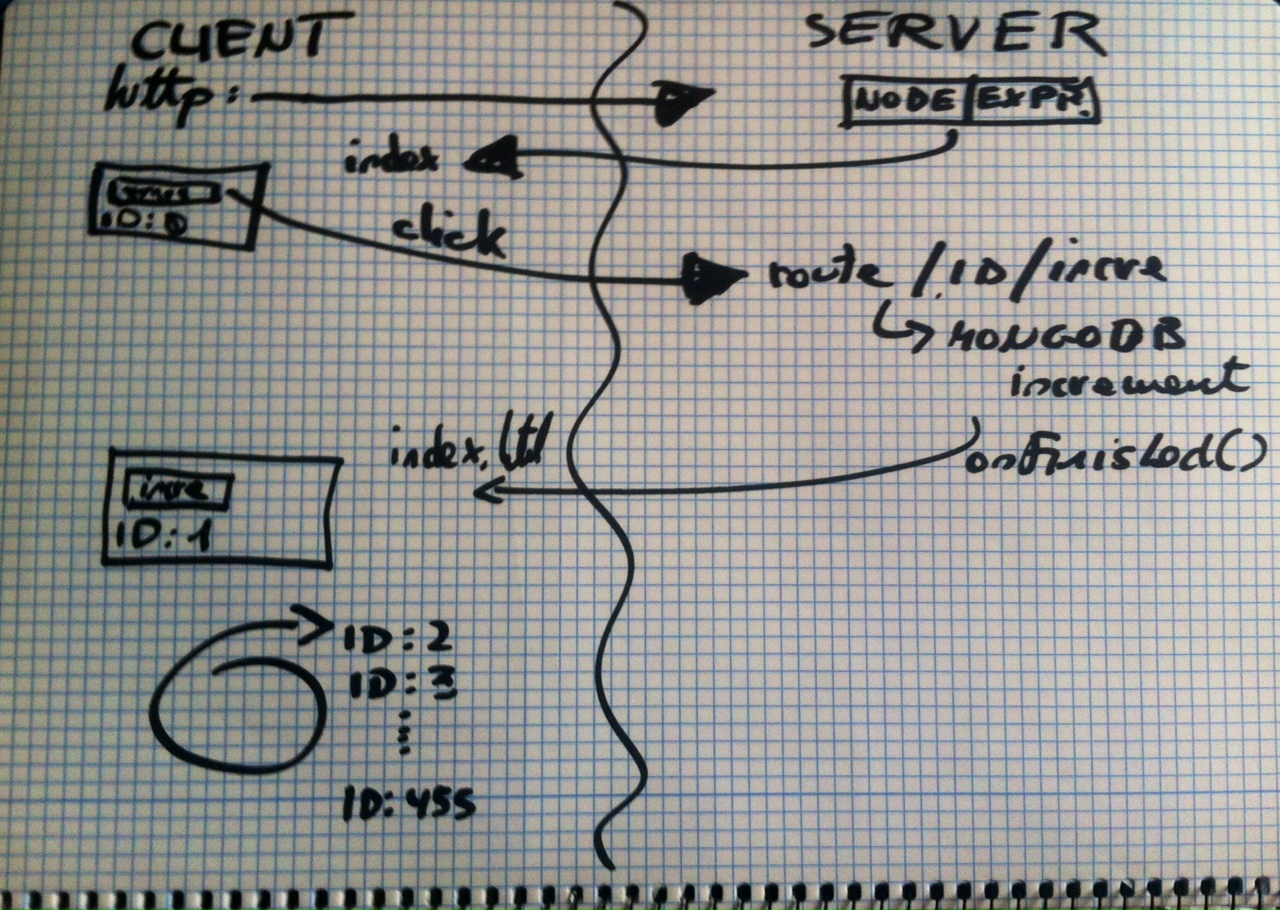 CLIENT
SERVER
http:
NODE EXPR.
index
ID: 0
click
route /:ID/incre
MONGODB
increment
index.html
onFinished()
incre
ID: 1
ID: 2
ID: 3
ID: 455